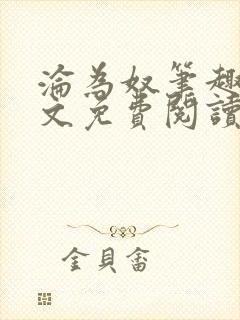 淪為奴筆趣
文免費閱讀
金貝畬